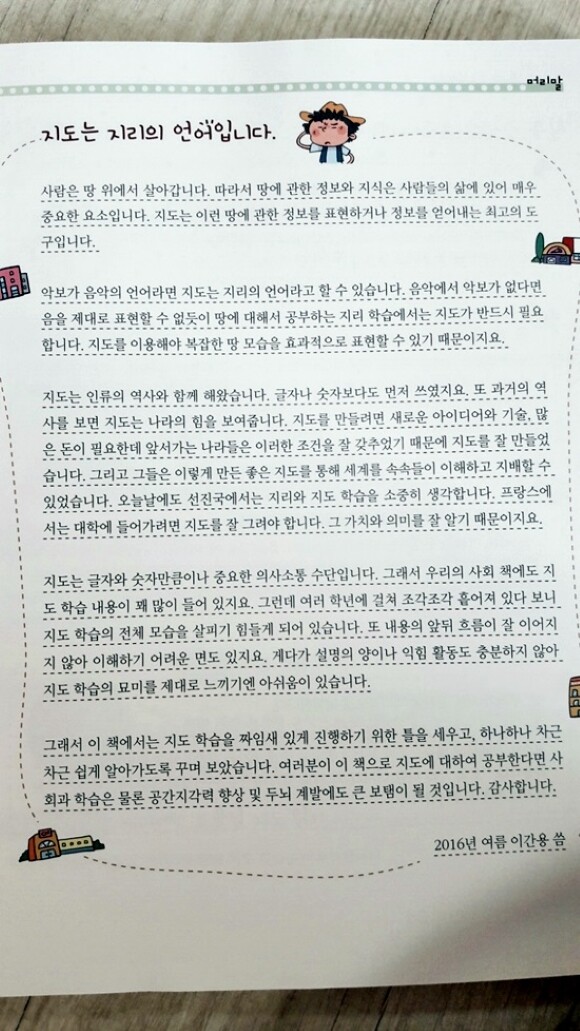 머리말
지도는 지리의 언어입니다.
사람은 땅 위에서 살아갑니다. 따라서 땅에 관한 정보와 지식은 사람들의 삶에 있어 매우
중요한 요소입니다. 지도는 이런 땅에 관한 정보를 표현하거나 정보를 얻어내는 최고의 도
구입니다.
악보가 음악의 언어라면 지도는 지리의 언어라고 할 수 있습니다. 음악에서 악보가 없다면
음을 제대로 표현할 수 없듯이 땅에 대해서 공부하는 지리 학습에서는 지도가 반드시 필요
합니다. 지도를 이용해야 복잡한 땅 모습을 효과적으로 표현할 수 있기 때문이지요.
지도는 인류의 역사와 함께 해왔습니다. 글자나 숫자보다도 먼저 쓰였지요. 또 과거의 역
사를 보면 지도는 나라의 힘을 보여줍니다. 지도를 만들려면 새로운 아이디어와 기술, 많
은 돈이 필요한데 앞서가는 나라들은 이러한 조건을 잘 갖추었기 때문에 지도를 잘 만들었
습니다. 그리고 그들은 이렇게 만든 좋은 지도를 통해 세계를 속속들이 이해하고 지배할 수
있었습니다. 오늘날에도 선진국에서는 지리와 지도 학습을 소중히 생각합니다. 프랑스에
서는 대학에 들어가려면 지도를 잘 그려야 합니다. 그 가치와 의미를 잘 알기 때문이지요.
지도는 글자와 숫자만큼이나 중요한 의사소통 수단입니다. 그래서 우리의 사회 책에도 지
도 학습 내용이 꽤 많이 들어 있지요. 그런데 여러 학년에 걸쳐 조각조각 흩어져 있다 보니
지도 학습의 전체 모습을 살피기 힘들게 되어 있습니다. 또 내용의 앞뒤 흐름이 잘 이어지
지 않아 이해하기 어려운 면도 있지요. 게다가 설명의 양이나 익힘 활동도 충분하지 않아
지도 학습의 묘미를 제대로 느끼기엔 아쉬움이 있습니다.
그래서 이 책에서는 지도 학습을 짜임새 있게 진행하기 위한 틀을 세우고, 하나하나 차근
차근 쉽게 알아가도록 꾸며 보았습니다. 여러분이 이 책으로 지도에 대하여 공부한다면 사
회과 학습은 물론 공간지각력 향상 및 두뇌 계발에도 큰 보탬이 될 것입니다. 감사합니다.
2016년 여름 이간용 씀